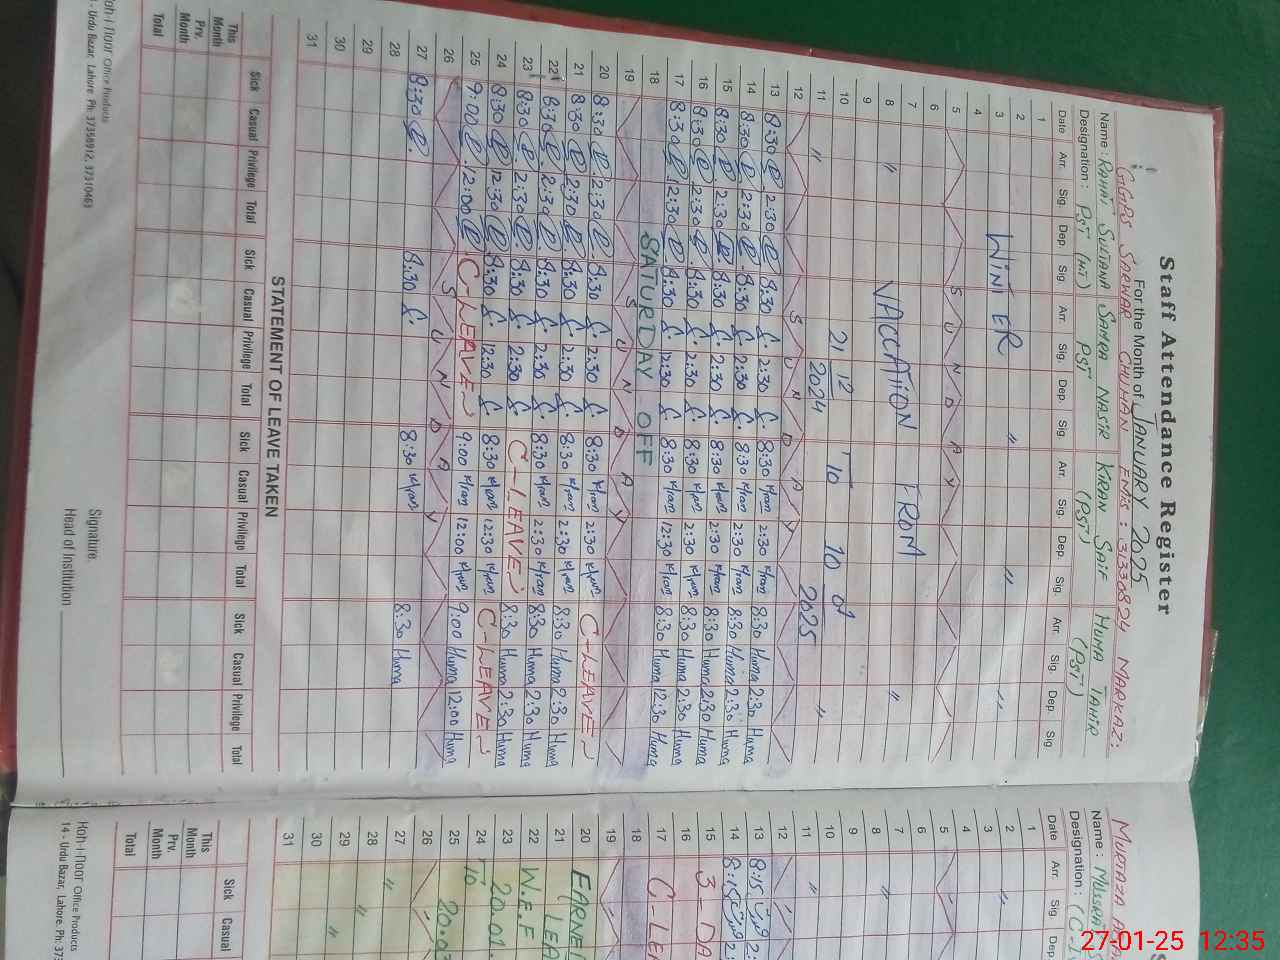 Staff Attendance Register
For the Month of JANUARY 2025
GGPS SARWAR CHUHAN EMIS: 31330824 MARKAZ:
Name: RAHAT SULTANA SAMRA NASIR KIRAN SAIF HUMA TAHIR
Designation: PST (HT) PST (PST) (PST)
Date Arr. Sig. Dep. Sig Arr. Sig. Dep. Sig Arr. Sig. Dep. Sig. Arr. Sig. Dep. Sig
1
2
3 WINTER " " "
4
5 S U N D A Y
6
7
8 " VACCATiON FROM "
9
10 21 12 2024 To 10 01 2025
11 " "
12 S U N D A Y
13 8:30 2:30 8:30 2:30 8:30 Kiran 2:30 Kiran 8:30 Huma 2:30 Huma
14 8:30 2:30 8:30 2:30 8:30 Kiran 2:30 Kiran 8:30 Huma 2:30 Huma
15 8:30 2:30 8:30 2:30 8:30 Kiran 2:30 Kiran 8:30 Huma 2:30 Huma
16 8:30 2:30 8:30 2:30 8:30 Kiran 2:30 Kiran 8:30 Huma 2:30 Huma
17 8:30 2:30 8:30 12:30 8:30 Kiran 12:30 Kiran 8:30 Huma 12:30 Huma
18 SATURDAY OFF
19 S U N D A Y
20 8:30 2:30 8:30 2:30 8:30 Kiran 2:30 Kiran C-LEAVE
21 8:30 2:30 8:30 2:30 8:30 Kiran 2:30 Kiran 8:30 Huma 2:30 Huma
22 8:30 2:30 8:30 2:30 8:30 Kiran 2:30 Kiran 8:30 Huma 2:30 Huma
23 8:30 2:30 8:30 2:30 C-LEAVE 8:30 Huma 2:30 Huma
24 8:30 12:30 8:30 12:30 8:30 Kiran 12:30 Kiran C-LEAVE
25 9:00 12:00 C-LEAVE 9:00 Kiran 12:00 Kiran 9:00 Huma 12:00 Huma
26 S U N D A Y
27 8:30 8:30 8:30 Kiran 8:30 Huma
28
29
30
31
STATEMENT OF LEAVE TAKEN
Sick Casual Privilege Total Sick Casual Privilege Total Sick Casual Privilege Total Sick Casual Privilege Total
This Month
Prv. Month
Total
Signature.
Head of Institution
Koh-i-Noor Office Products
14 - Urdu Bazar, Lahore Ph: 37358912, 37310463
MURTAZA
Name:
Designation:
Date Arr. Sig. Dep
1
2 "
3
4
5
6
7 "
8
9
10
11 "
12
13 8:15 2:
14 8:15 2:
15 3-DA
16
17 C-LE
18
19
20 EARNE
21 LEA
22 W.E.F
23 20.01
24 To
25 20.0
26
27 "
28 "
29 "
30
31
Sick Casual
This Month
Prv. Month
Total
Koh-i-Noor Office Products
14 - Urdu Bazar, Lahore. Ph: 373
27-01-25 12:35